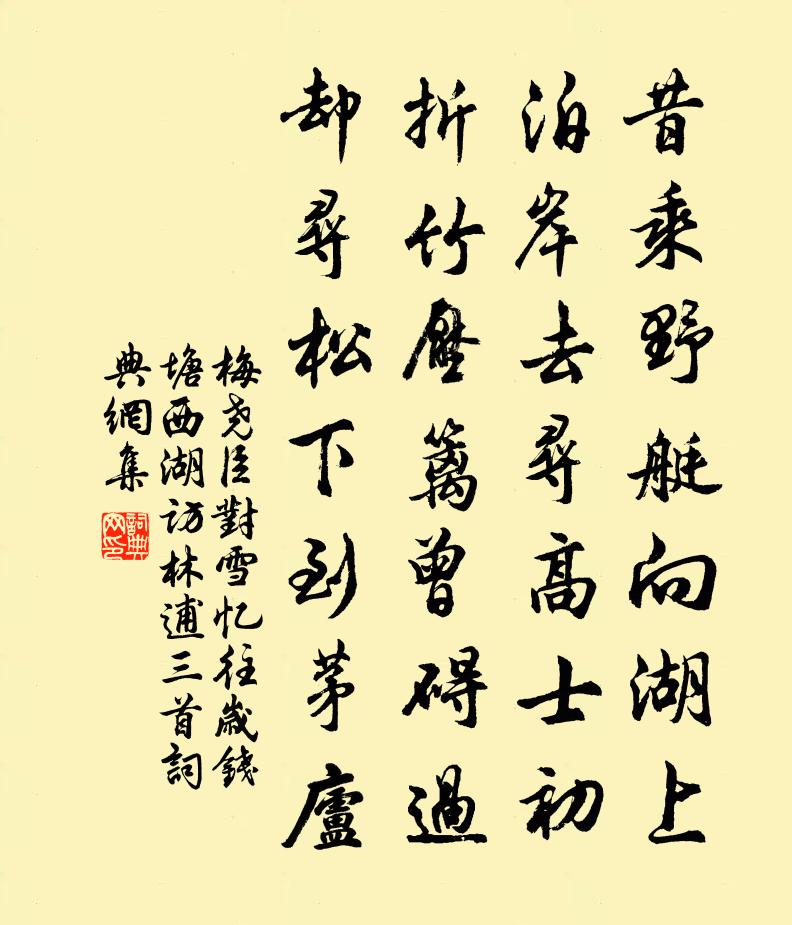 昔乘野艇向湖上
泊岸去尋高士初
折竹壓籬曾碍過
却尋松下到茅廬
梅尧臣對雪忆往歲錢
塘西湖访林逋三首詞
典網集
詞典
网印